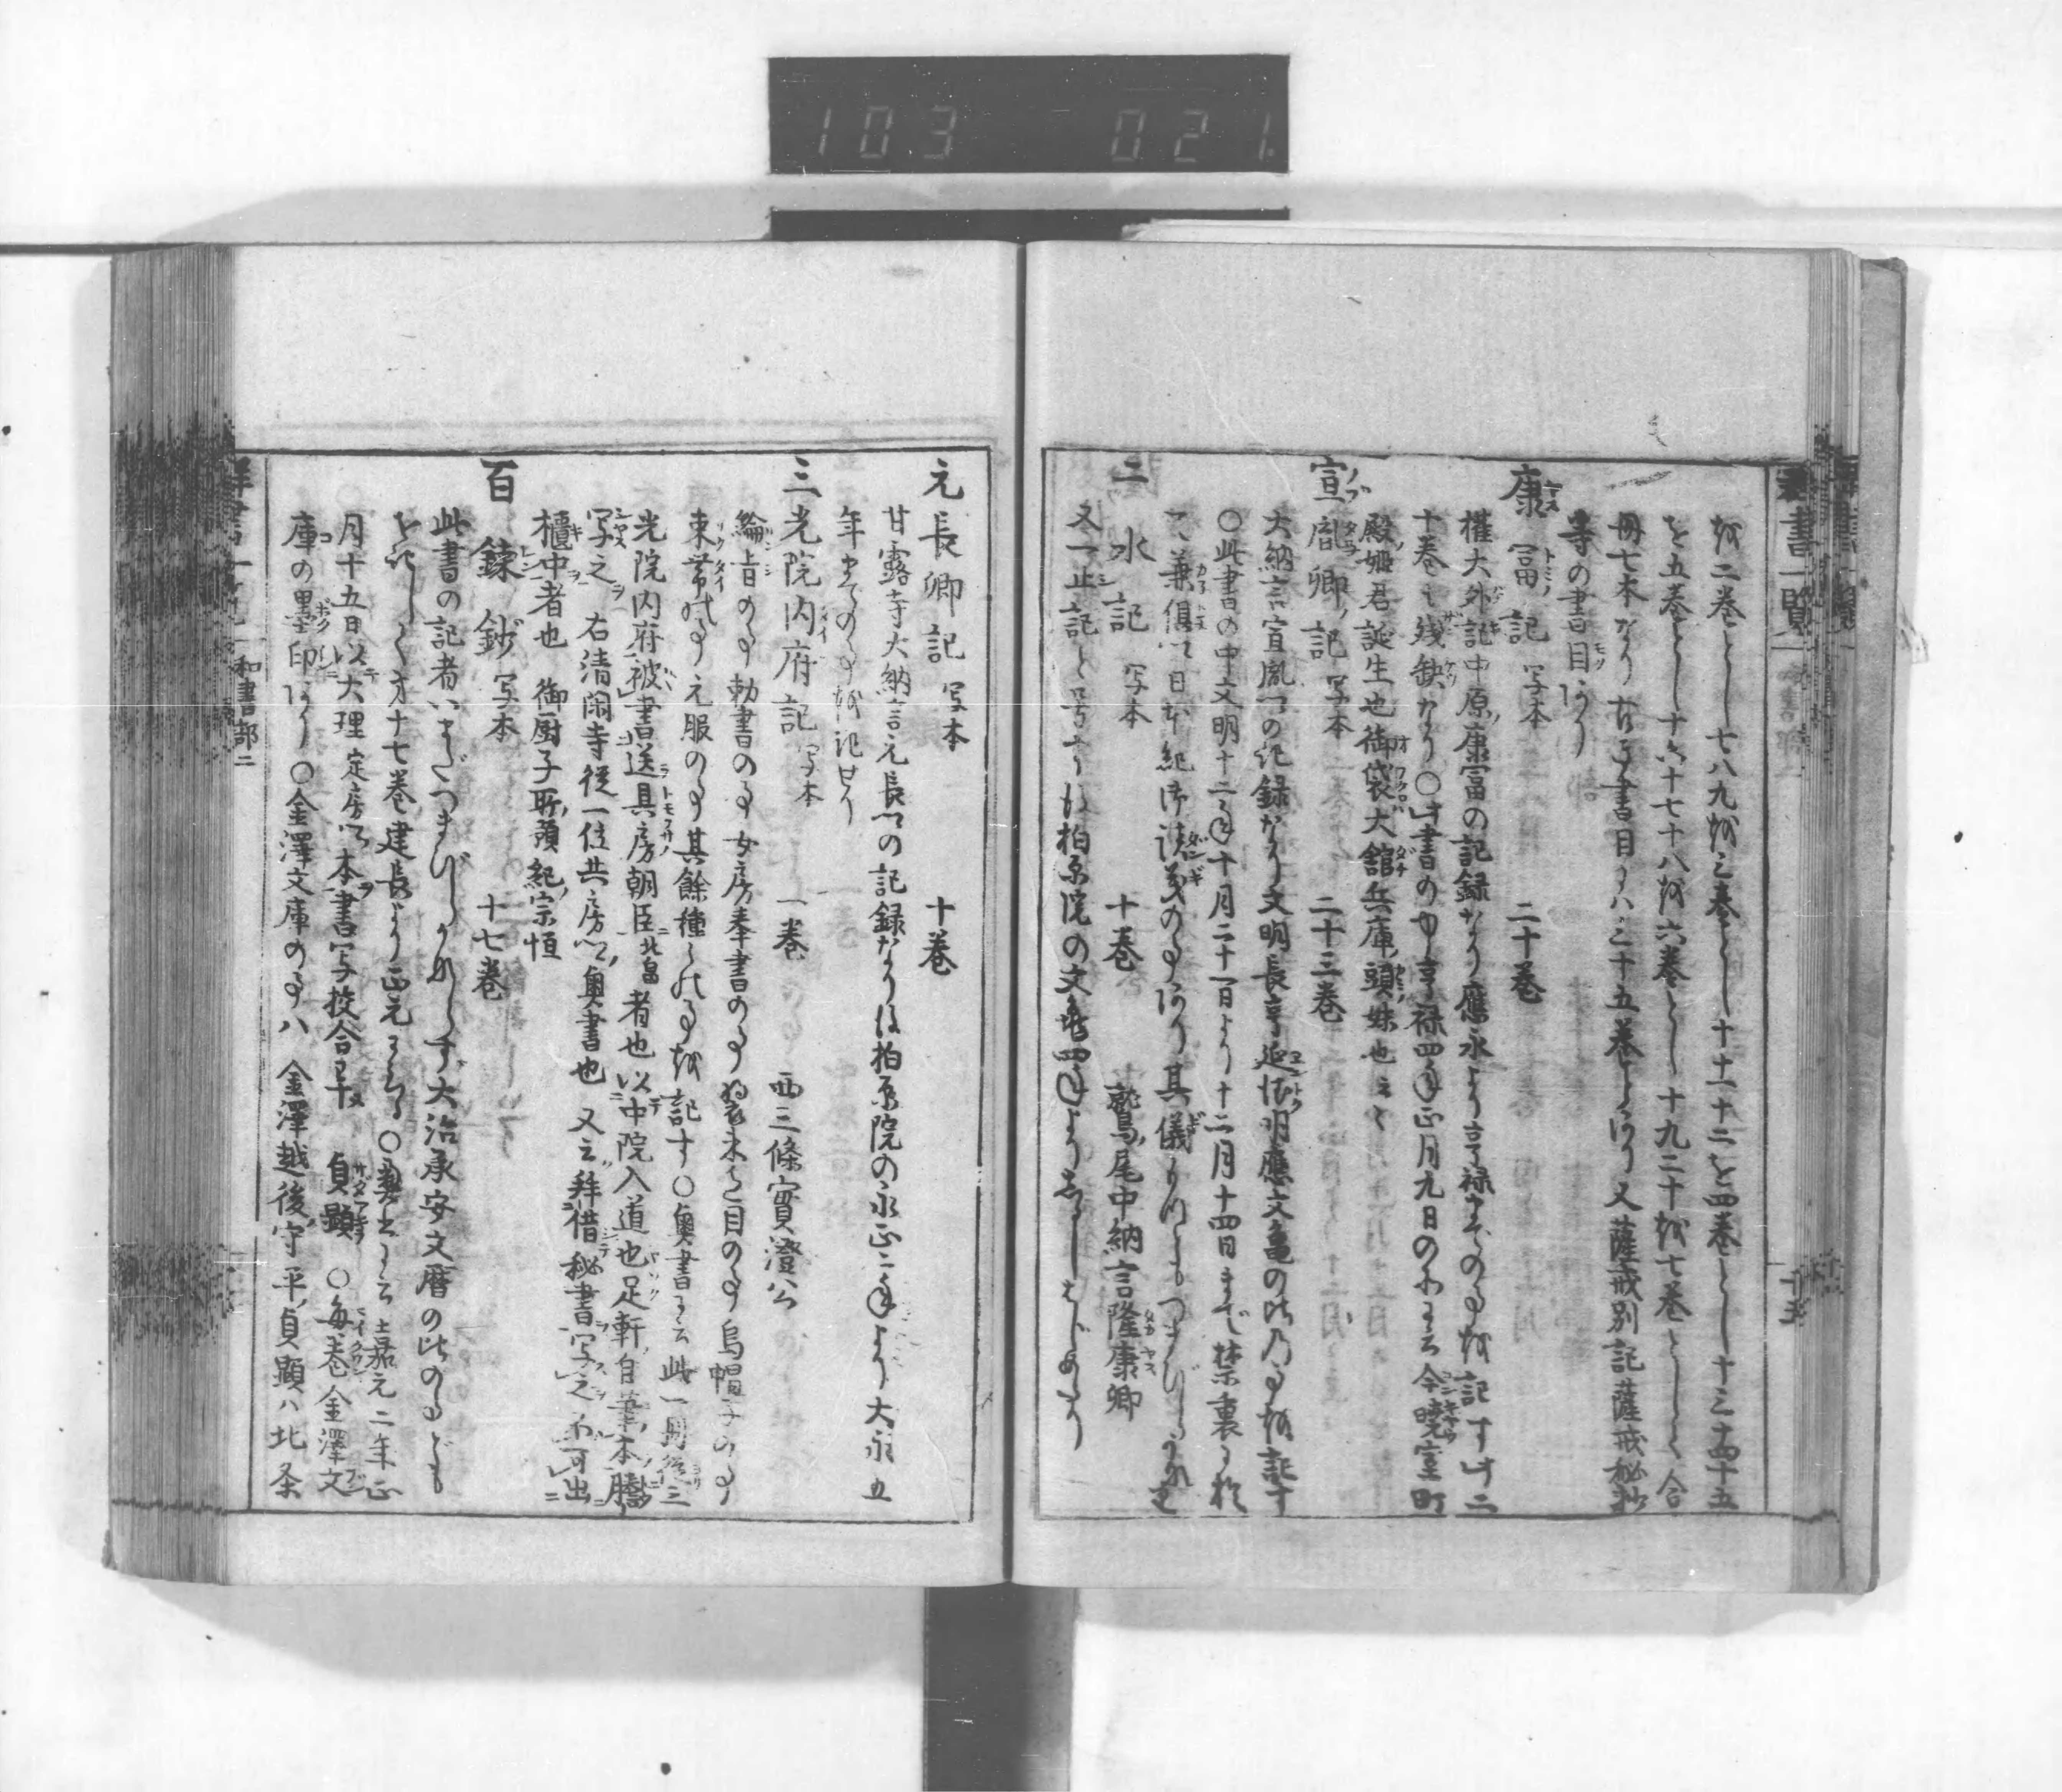 103 021
羣書一覧二
を二巻とし七八九を三巻とし十十一十二を四巻とし十三十四十五
を五巻とし十六十七十八を六巻とし十九二十を七巻としく合
冊七本なり 書目には三十五巻とあり又薩戒別記薩戒秘抄
等の書目あり
康冨記 写本 二十巻
権大外記中原康冨の記録なり應永より享禄までの事を記す廿二
十巻之残缺なり○此書の中享禄四年正月九日の に云今暁室町
殿姫君誕生也御袋大舘兵庫頭妹也云々
宣胤卿記 写本 二十三巻
大納言宣胤卿の記録なり文明長亨延徳明應文亀の比乃事を記す
○此書の中文明十二年十月二十一日より十二月十四日まで禁裏に於
て兼倶卿日本紀御談義の事あり其儀 つまびらかなり
二水記 写本 十巻 鷲尾中納言隆康卿
又一止記と号す後柏原院の文亀四年よりしるしはじめたり
元長卿記 写本 十巻
甘露寺大納言元長卿の記録なり後柏原院の永正二年より大永五
年までの事を記せり
三光院内府記 写本 一巻 西三條實澄公
綸旨の事勅書の事女房奉書の事 の事烏帽子の事
束帯 事元服の事其餘種々の事を記す○奥書に云此一冊從三
光院内府被書送具房朝臣北畠者也以中院入道也足軒自筆本謄
写之 右清閑寺從一位共房卿奥書也 又云拜借秘書写之不可出
櫃中者也 御厨子所預紀宗恒
百錬鈔 写本 十七巻
此書の記者いまだつまびらかならず大治承安文暦の比のことども
を記しく 十七巻建長より正元にいたる○奥書に云嘉元二年正
月十五日以大理定房卿本書写校合畢 貞顕 ○毎巻金澤文
庫の墨印あり○金澤文庫の事ハ 金澤越後守平貞顕ハ北条
羣書一覧 和書部二